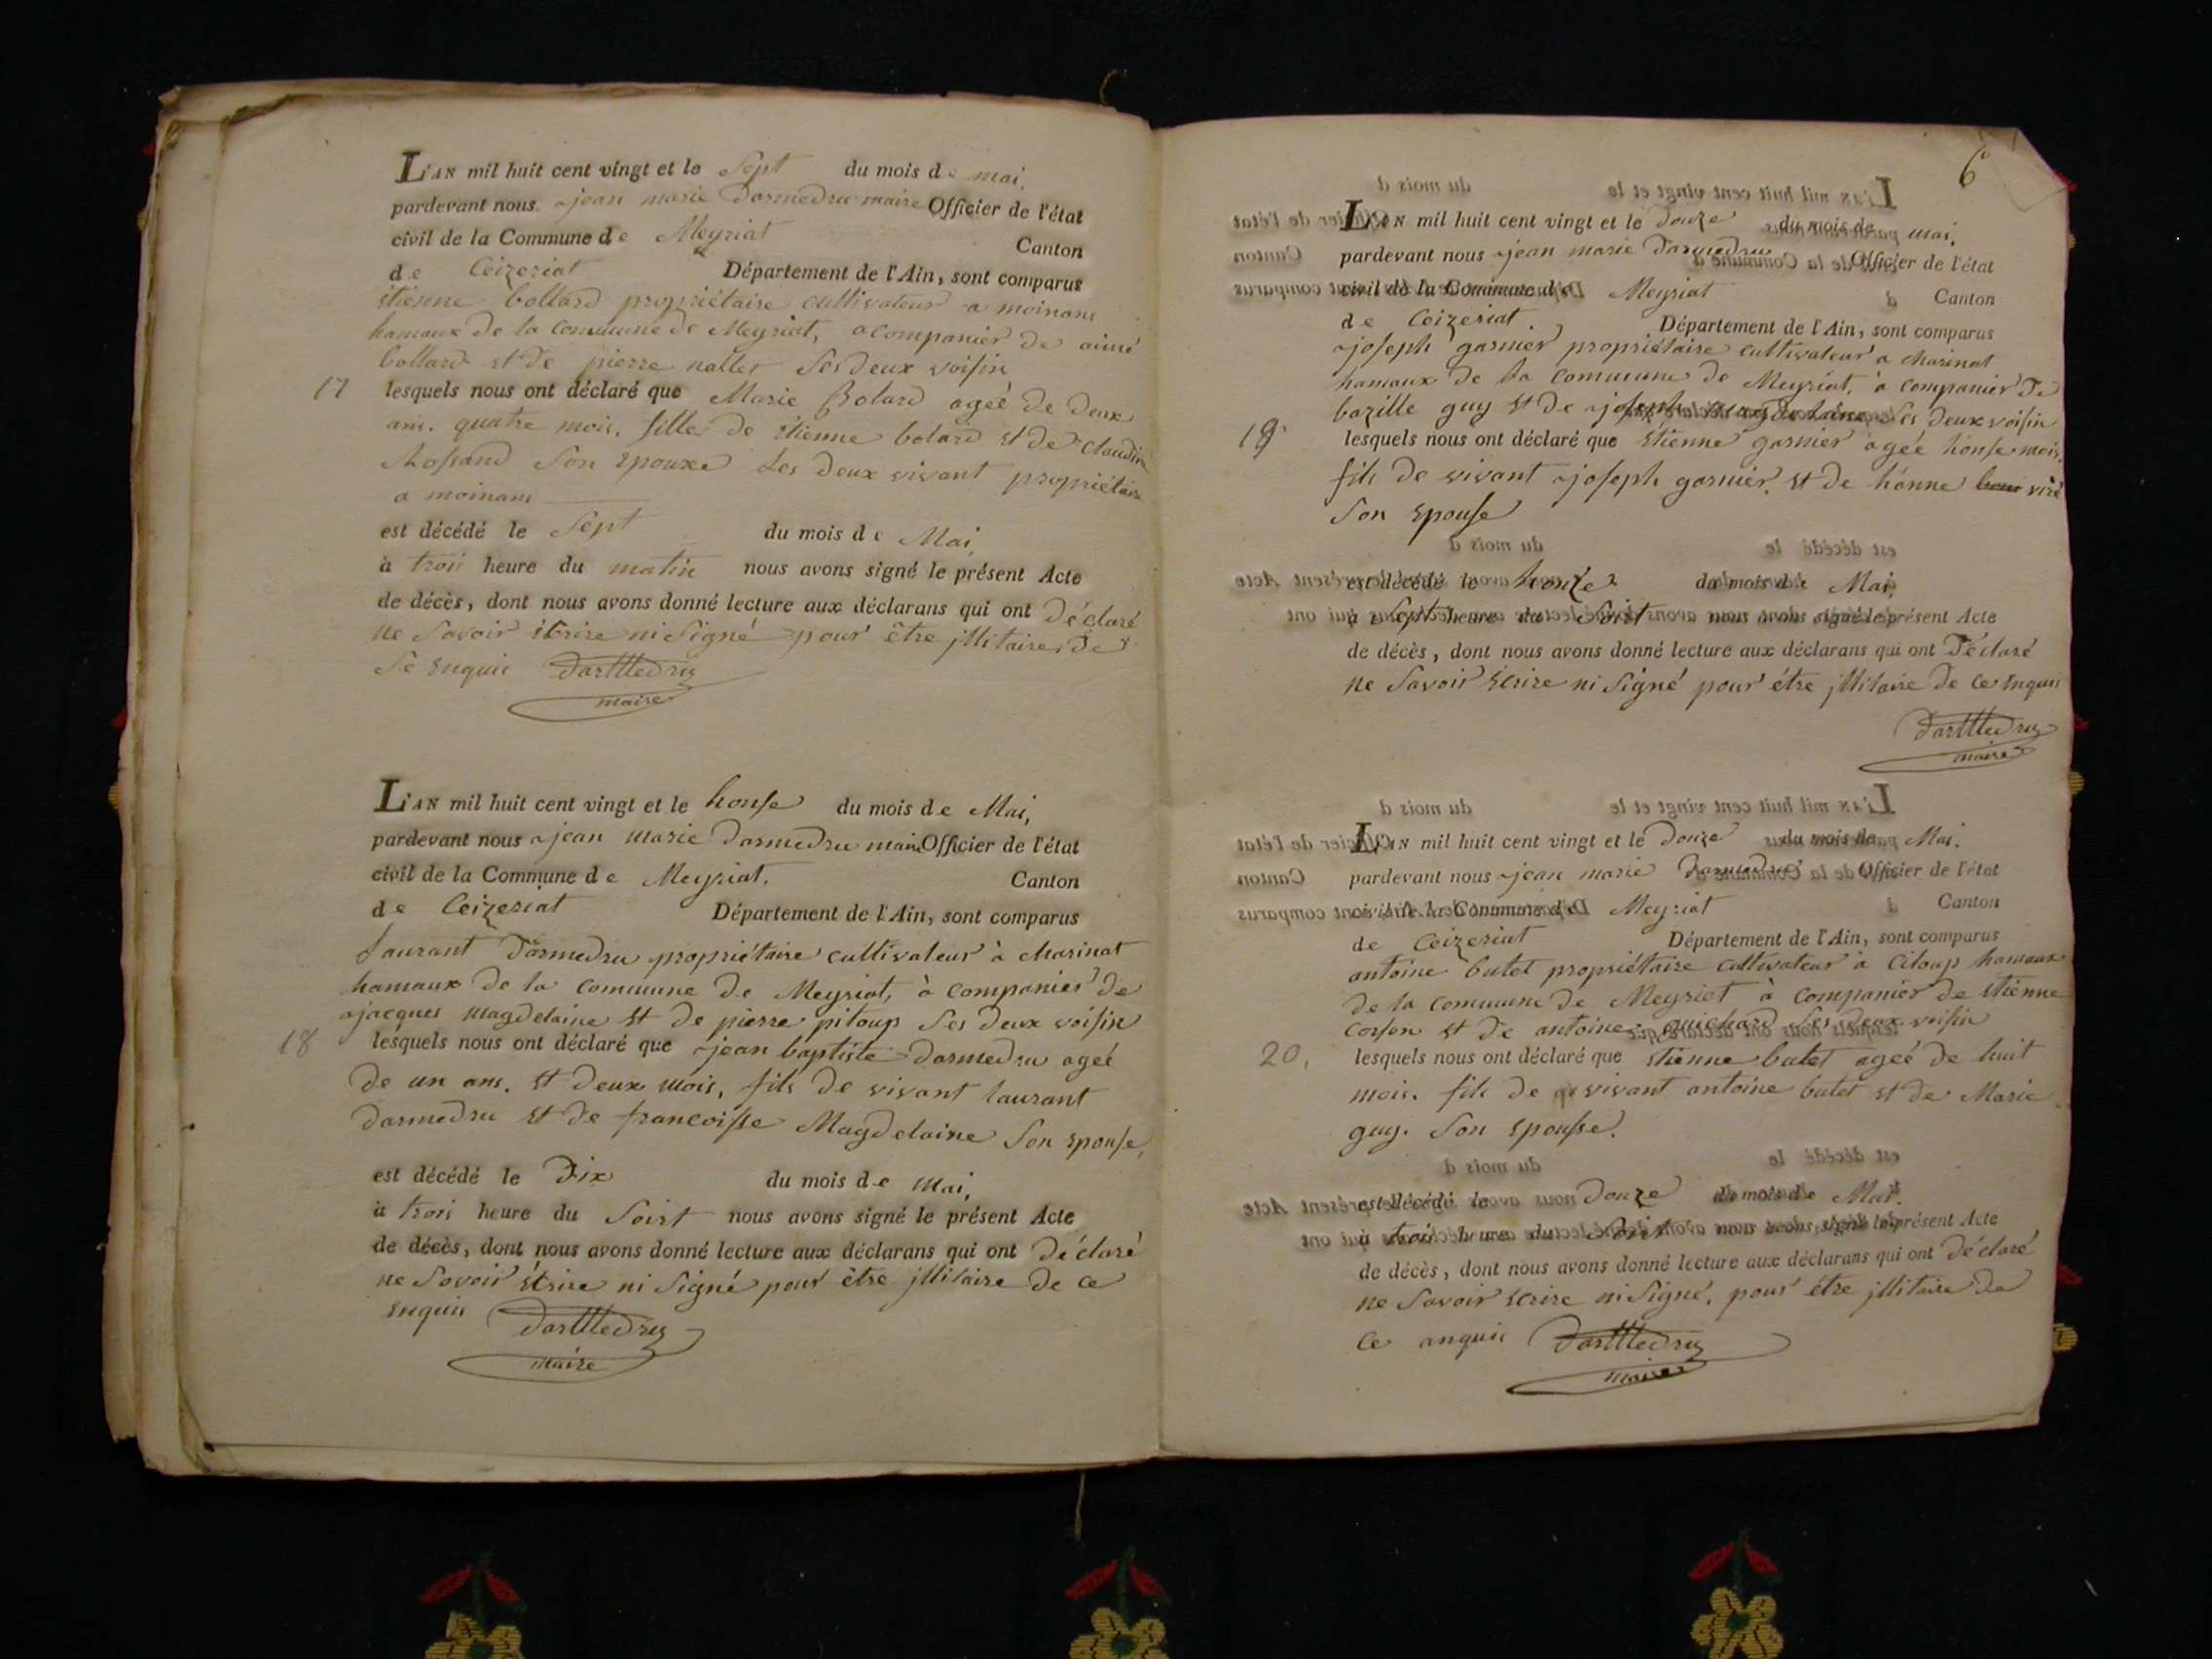 L'AN mil huit cent vingt et le Sept du mois de mai,
pardevant nous jean marie Darmedru maire Officier de l'état
civil de la Commune de Meyriat Canton
de Ceizeriat Département de l'Ain, sont comparus
étienne bollard propriétaire cultivateur a moinans
hamaux de la commune de Meyriat, acompanier de aimé
bollard et de pierre nallet Ses deux voisin
17 lesquels nous ont déclaré que Marie Bolard ageé de deux
ans. quatre mois, fille de étienne bolard et de claudine
chossand Son epouxe Les deux vivant propriétaire
a moinans
est décédé le Sept du mois de Mai,
à trois heure du matin nous avons signé le présent Acte
de décès, dont nous avons donné lecture aux déclarans qui ont Déclaré
ne Savoir écrire ni Signé pour être jllitaire, De
Se enquis DarMedru
maire
L'AN mil huit cent vingt et le honse du mois de Mai,
pardevant nous jean marie Darmedru maire Officier de l'état
civil de la Commune de Meyriat. Canton
de Ceizeriat Département de l'Ain, sont comparus
Laurant Darmedru propriétaire cultivateur à charinat
hamaux de la commune de Meyriat, à companier de
jacques Magdelaine et de pierre pitoup Ses deux voisin
18 lesquels nous ont déclaré que jean baptiste darmedru ageé
de un ans. et deux mois, fils de vivant laurant
darmedru et de francoisse Magdelaine Son epouse,
est décédé le Dix du mois de mai,
à trois heure du Soirt nous avons signé le présent Acte
de décès, dont nous avons donné lecture aux déclarans qui ont Déclaré
ne Savoir écrire ni Signé pour être jllitaire de ce
enquis DarMedru
maire
6
L'AN mil huit cent vingt et le douze du mois de mai,
pardevant nous jean marie Darmedru Officier de l'état
civil de la Commune de Meyriat Canton
de Ceizeriat. Département de l'Ain, sont comparus
joseph garnier propriétaire cultivateur a charinat
hamaux de la commune de Meyriat. à companier de
bazille guy et de joseph magdelaine Ses deux voisin
19 lesquels nous ont déclaré que étienne garnier agée honse mois.
fils de vivant joseph garnier. et de hánne viré
Son epouse
est décédé le honze du mois de Mai,
à Sept heure du Soirt nous avons signé le présent Acte
de décès, dont nous avons donné lecture aux déclarans qui ont Déclaré
ne Savoir écrire ni Signé pour être jllitaire de ce enquis
DarMedru
maire
L'AN mil huit cent vingt et le Douze du mois de Mai.
pardevant nous jean marie Darmedru Officier de l'état
civil de la Commune de Meyriat Canton
de Ceizeriat Département de l'Ain, sont comparus
antoine butet propriétaire cultivateur à Ciloup hamaux
de la commune de Meyriat à companier de étienne
corson et de antoine guichard Ses deux voisin
20, lesquels nous ont déclaré que étienne butet ageé de huit
mois. fils de vivant antoine butet et de Marie
guy. Son epousse.
est décédé le Douze du mois de Mai.
à trois heure du Soirt nous avons signé le présent Acte
de décès, dont nous avons donné lecture aux déclarans qui ont Déclaré
ne Savoir écrire ni Signé. pour être jllitaire de
Ce anquis DarMedru
maire